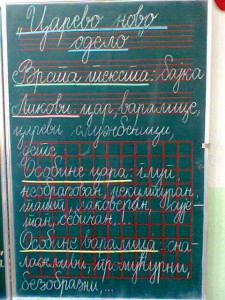 „Царево ново
одело"
Врста текста: бајка
Ликови: цар, варалице,
цареви службеници,
дете
Особине цара: глуп,
необразован, некултуран,
ташт, лаковеран, сује-
тан, себичан...
Особине варалица: сна-
лажљиви, промућурни,
безобразни,...